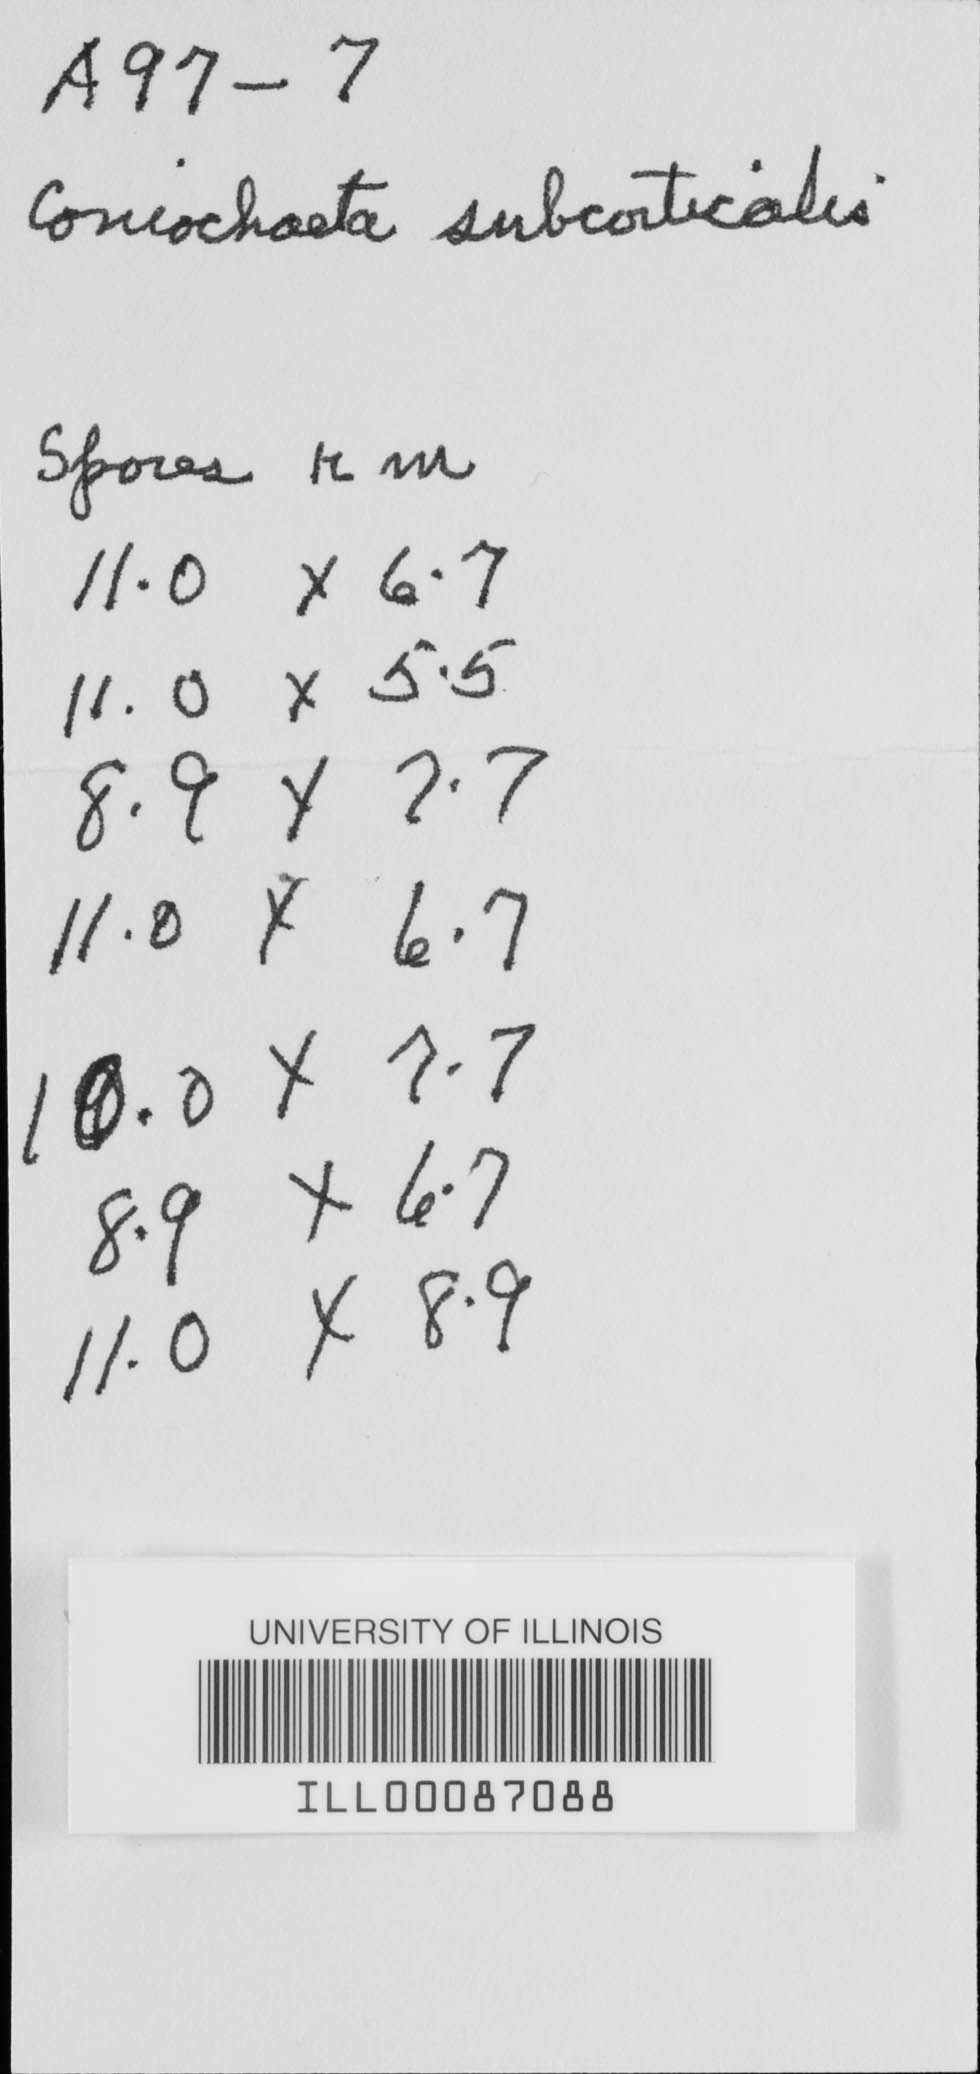 A97-7
Coniochaeta subcorticalis
Spores µm
11.0 x 6.7
11.0 x 5.5
8.9 x 7.7
11.0 x 6.7
10.0 x 7.7
8.9 x 6.7
11.0 x 8.9
UNIVERSITY OF ILLINOIS
ILL00087088